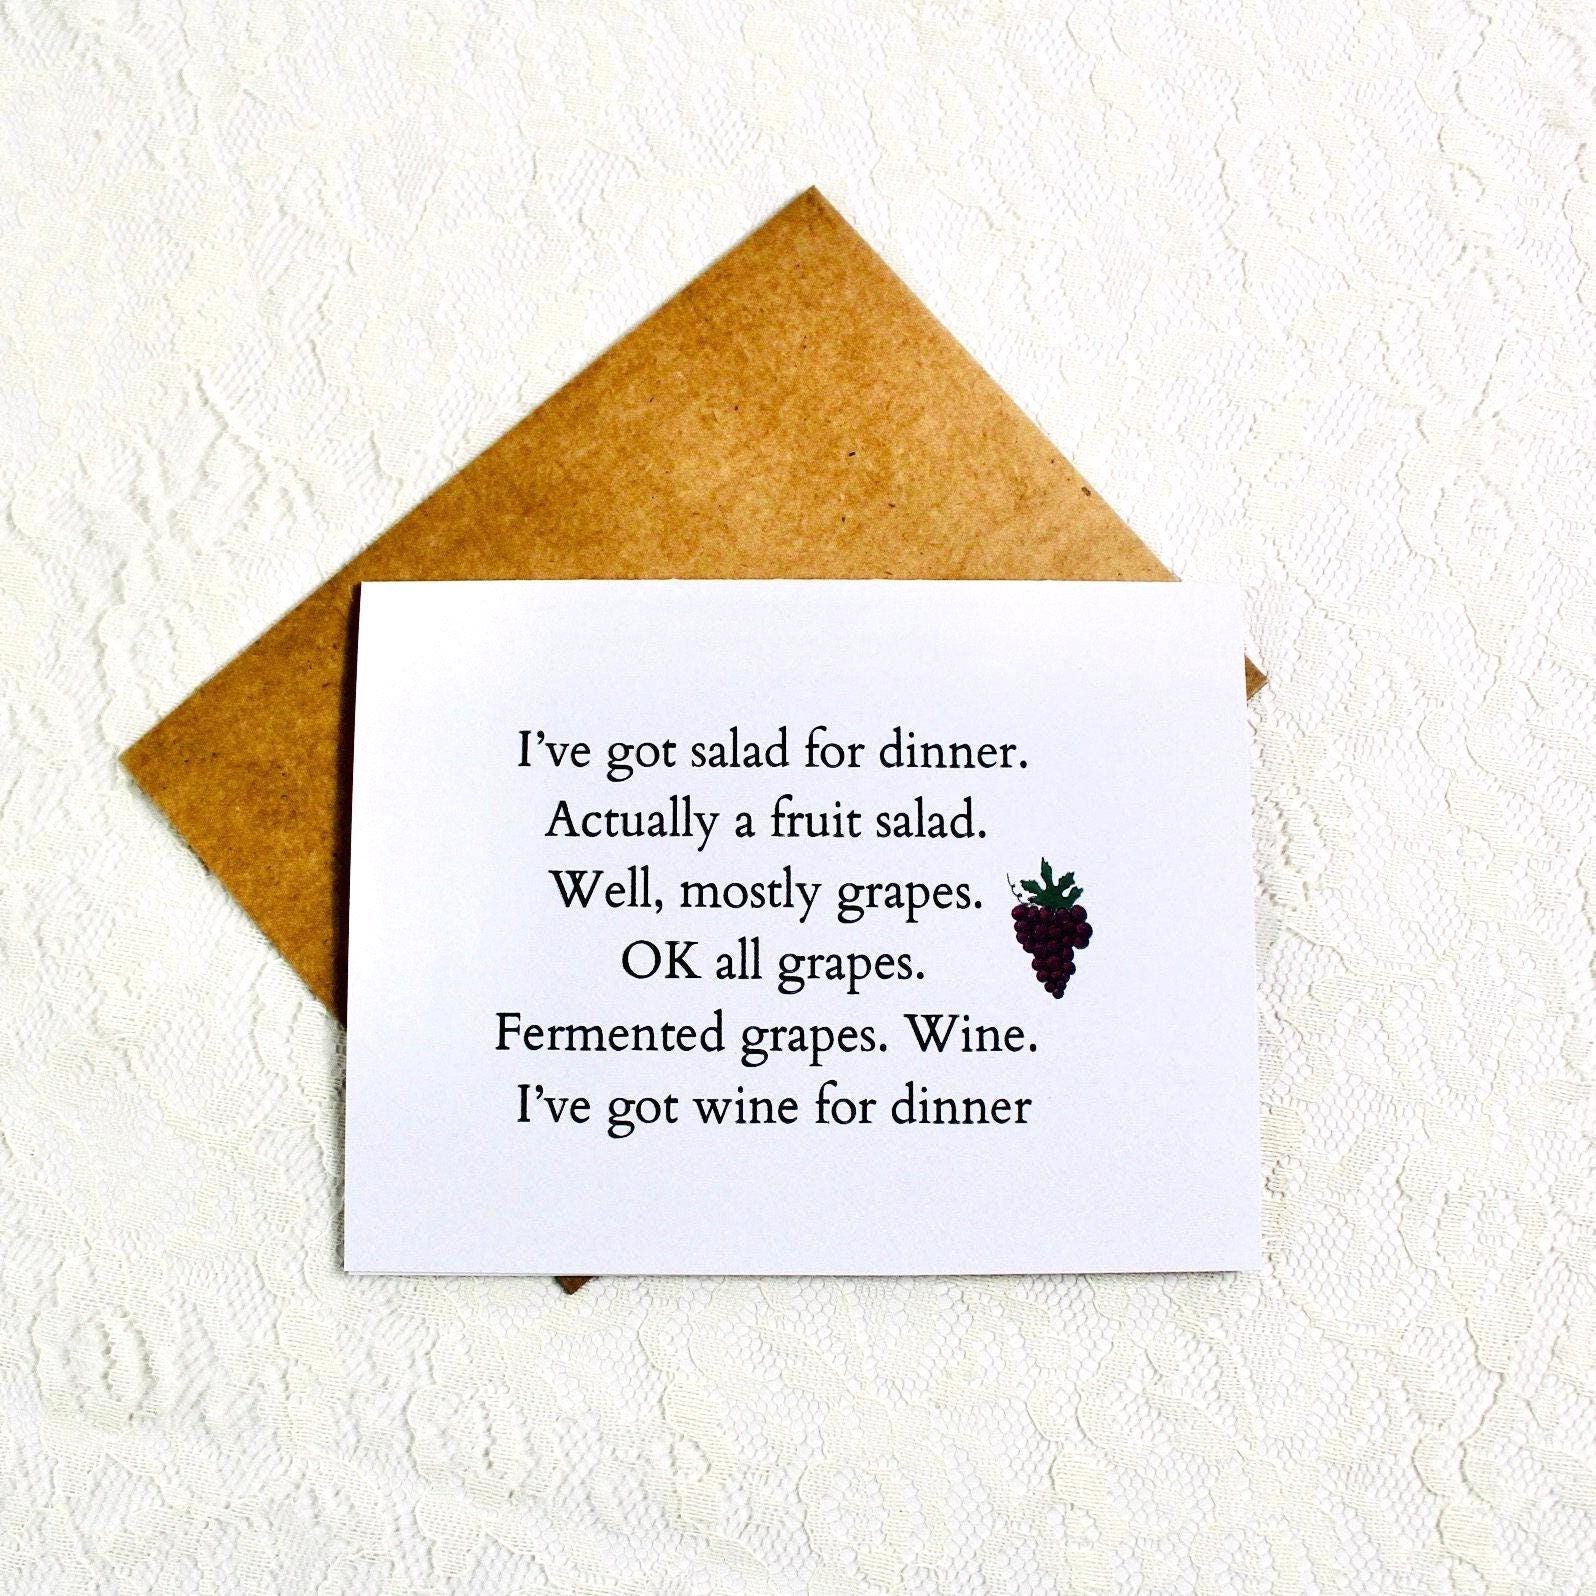 I’ve got salad for dinner.
Actually a fruit salad.
Well, mostly grapes.
OK all grapes.
Fermented grapes. Wine.
I’ve got wine for dinner